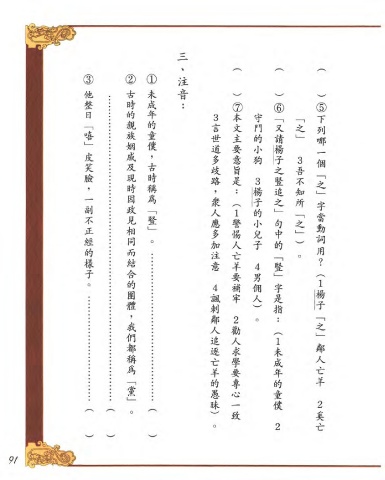 （　）⑤下列哪一個「之」字當動詞用？（1楊子「之」鄰人亡羊　2奚亡
「之」　3吾不知所「之」）。
（　）⑥「又請楊子之豎追之」句中的「豎」字是指：（1未成年的童僕　2
守門的小狗　3楊子的小兒子　4男佣人）。
（　）⑦本文主要意旨是：（1警惕人亡羊要補牢　2勸人求學要專心一致
3言世道多歧路，眾人應多加注意　4諷刺鄰人追逐亡羊的愚昧）。
三、注音：
①未成年的童僕，古時稱為「豎」。………………（　）
②古時的親族姻戚及現時因政見相同而結合的團體，我們都稱為「黨」。
………………（　）
③他整日「嘻」皮笑臉，一副不正經的樣子。………………（　）
91